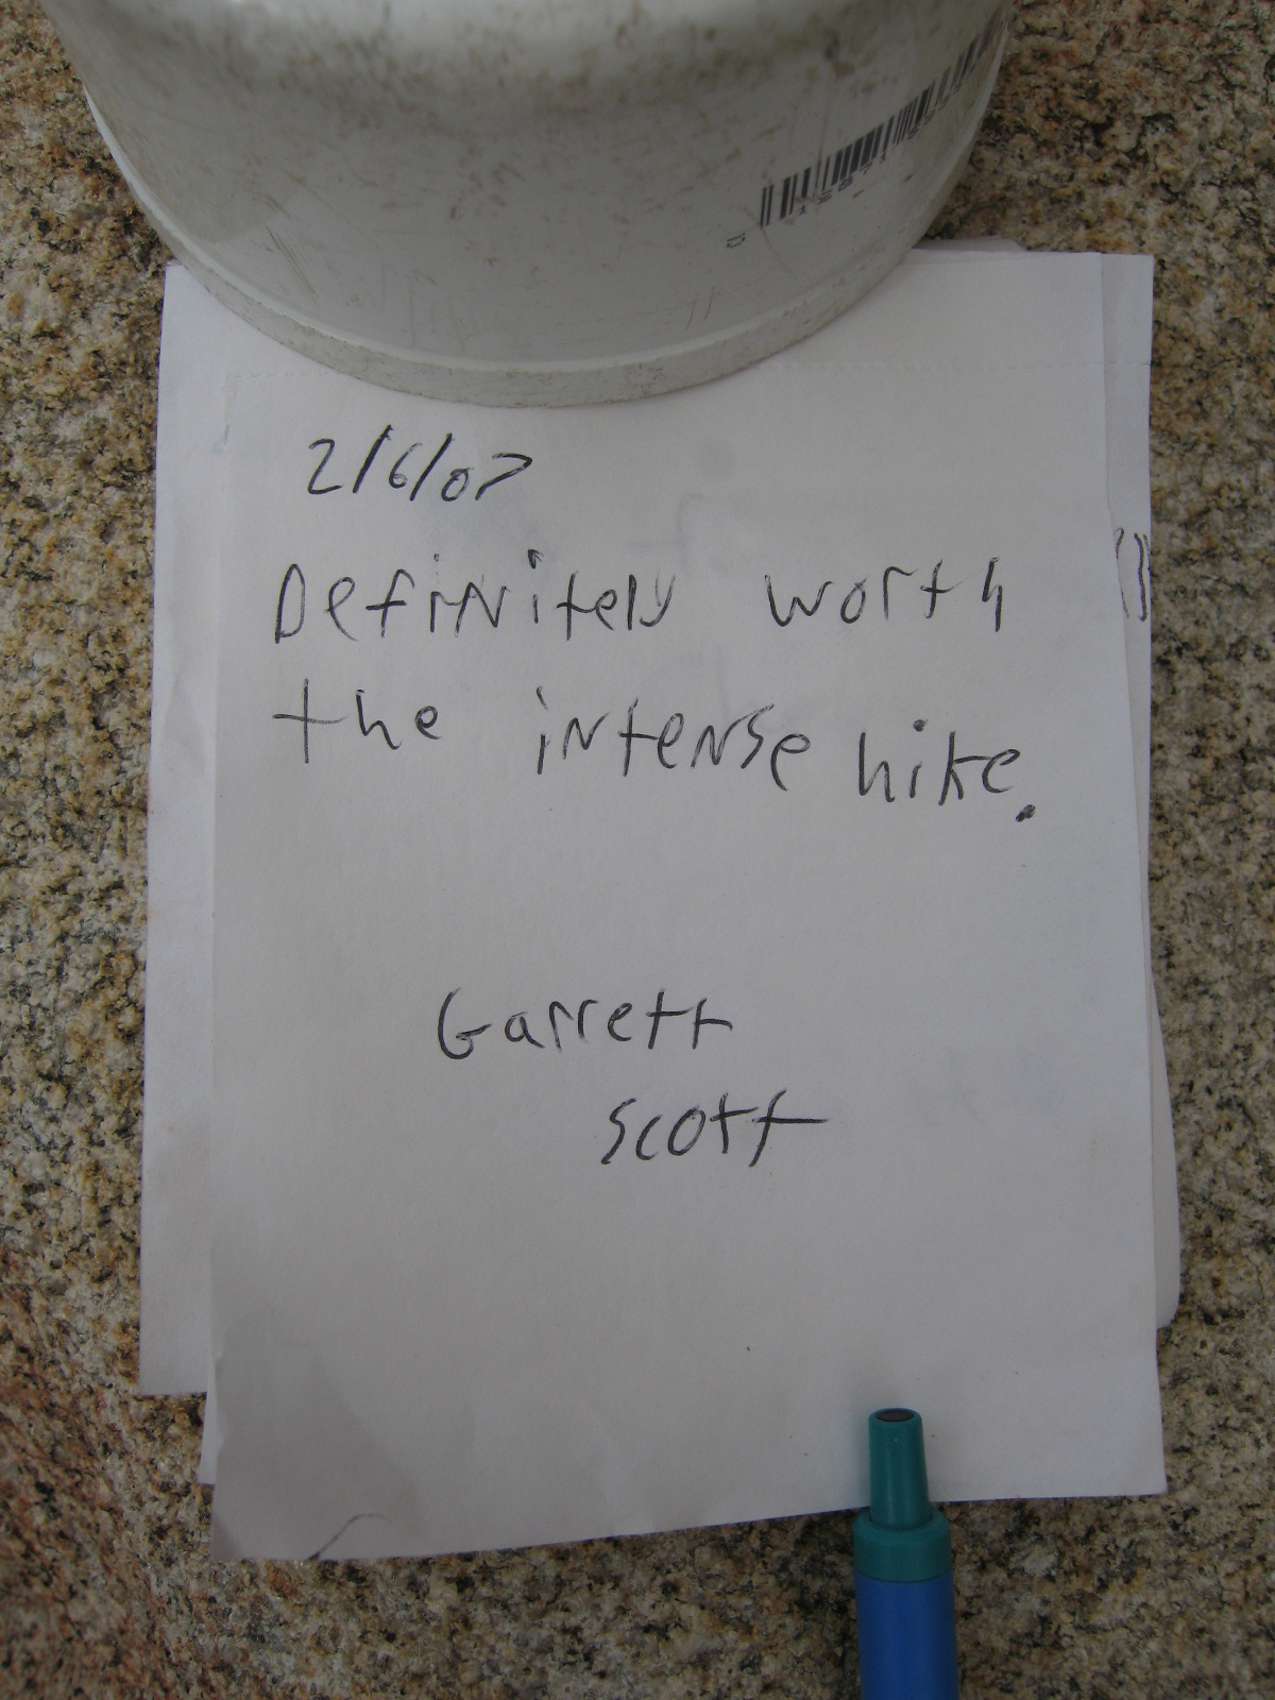 2/6/07
Definitely worth
the intense hike.
Garrett
Scott